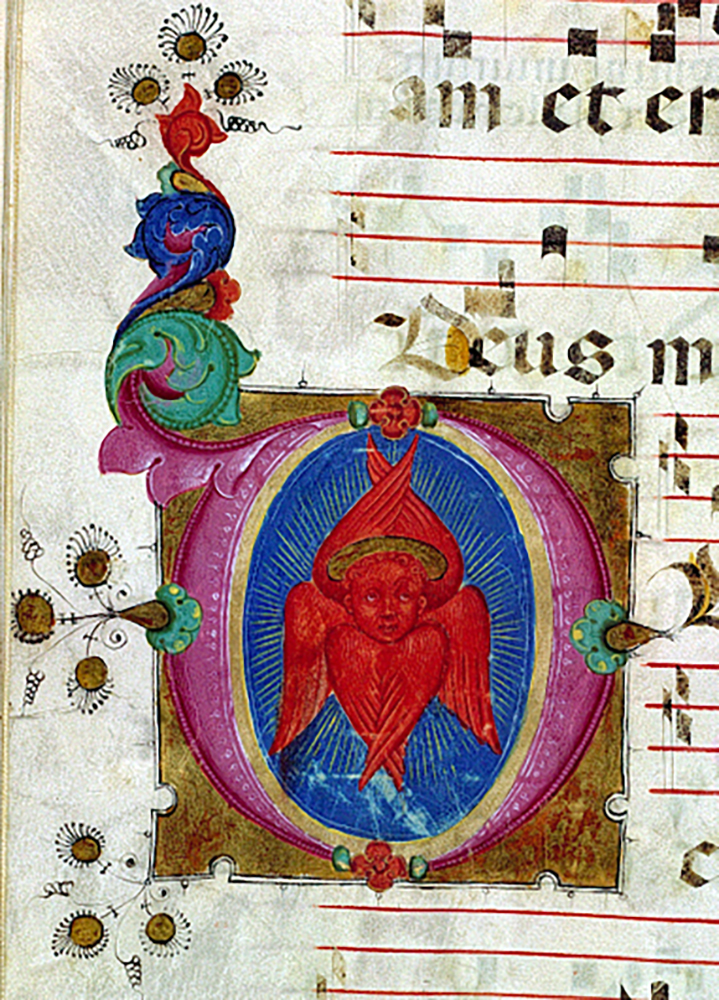 am et er
Deus m